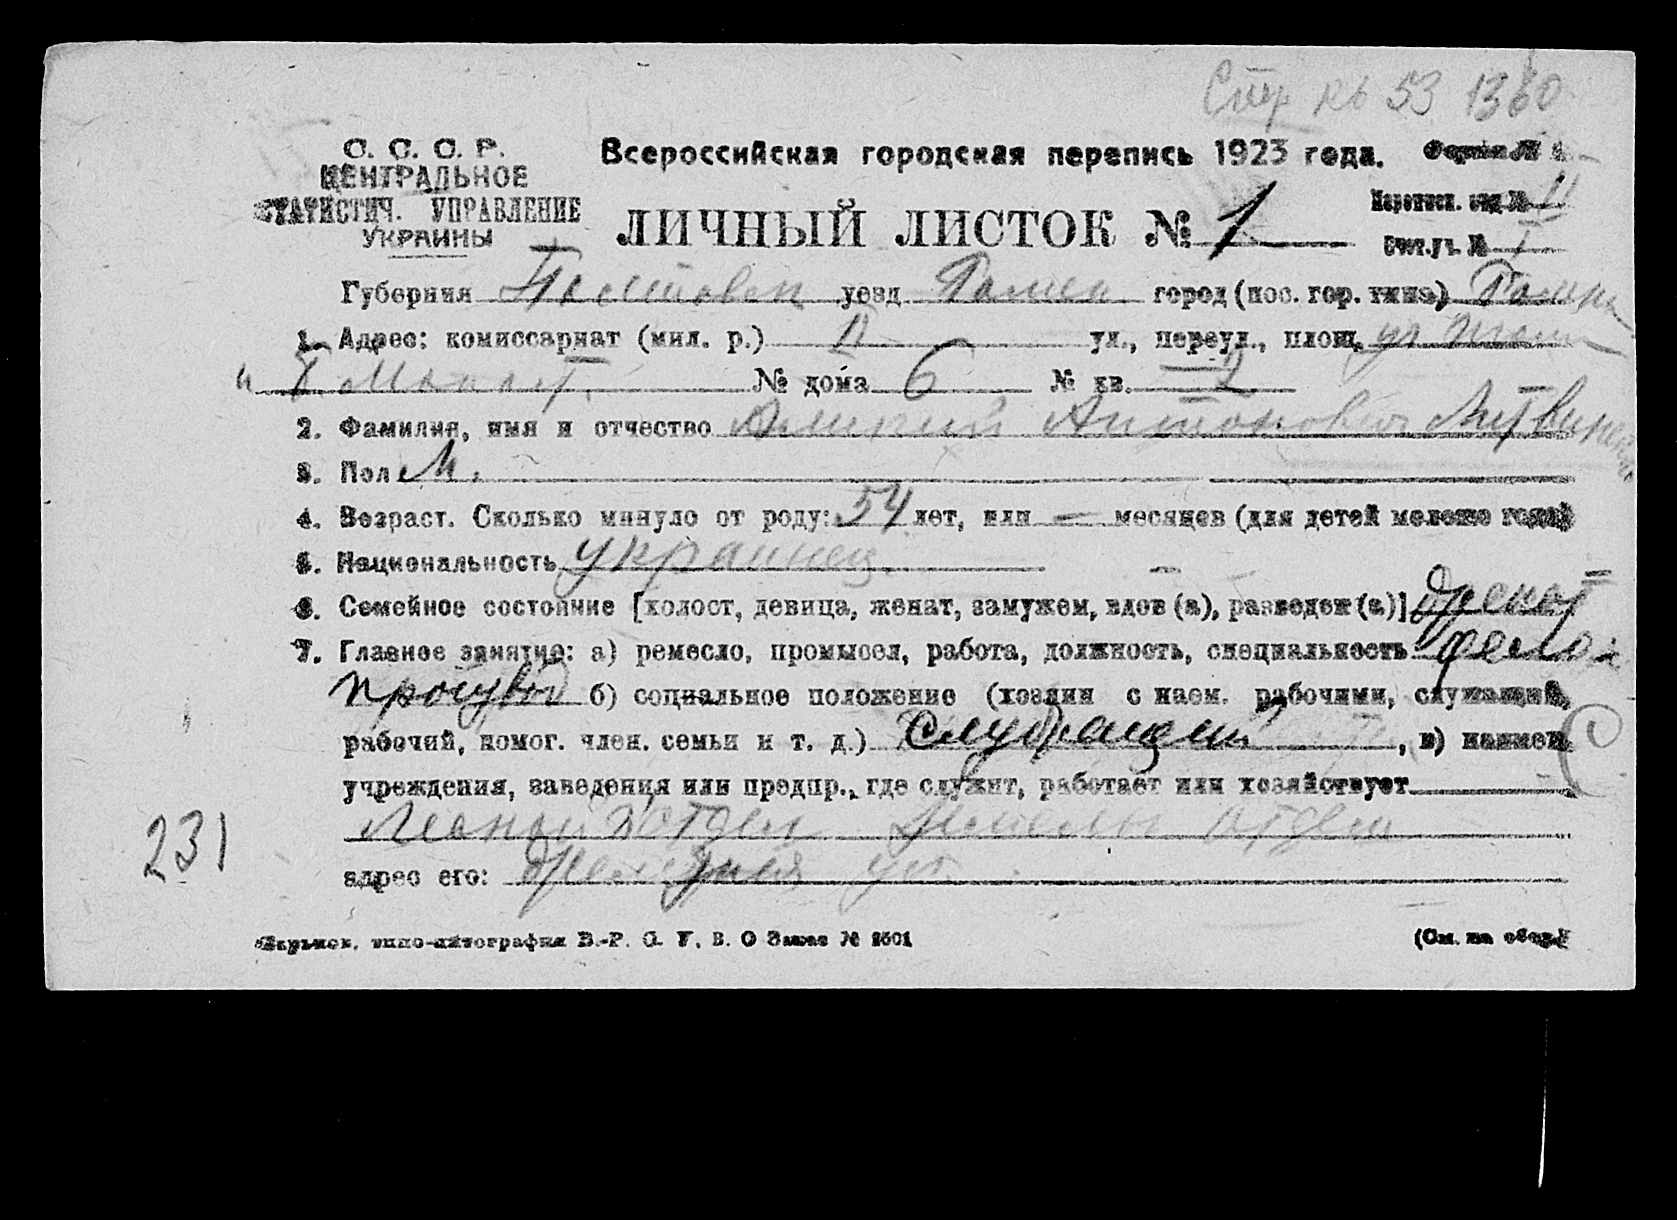 Стр кв 53 1360
С. С. С. Р. Всероссийская городская перепись 1923 года. Форма №
ЦЕНТРАЛЬНОЕ
СТАТИСТИЧ. УПРАВЛЕНИЕ
УКРАИНЫ
ЛИЧНЫЙ ЛИСТОК № 1
Переписн. отд. № 11
Счет. уч. № I
Губерния Полтовск уезд Ромен город (пос. гор. типа) Ромен
1. Адрес: комиссариат (мил. р.) II ул., переул., площ. ул
№ дома 6 № кв. 2
2. Фамилия, имя и отчество Антонович Литвиненко
3. Пол М.
4. Возраст. Сколько минуло от роду: 54 лет, или — месяцев (для детей моложе года)
5. Национальность украинец
6. Семейное состояние [холост, девица, женат, замужем, вдов (а), разведен (а)] женат
7. Главное занятие: а) ремесло, промысел, работа, должность, специальность дело-
производ б) социальное положение (хозяин с наем. рабочими, служащий,
рабочий, помог. член. семьи и т. д.) Служащий, в) наимен.
учреждения, заведения или предпр., где служит, работает или хозяйствует
отдел
адрес его: ул.
231
Харьков. типо-литография В.-Р. С. У. В. О Заказ № 2501
(См. на обор.)